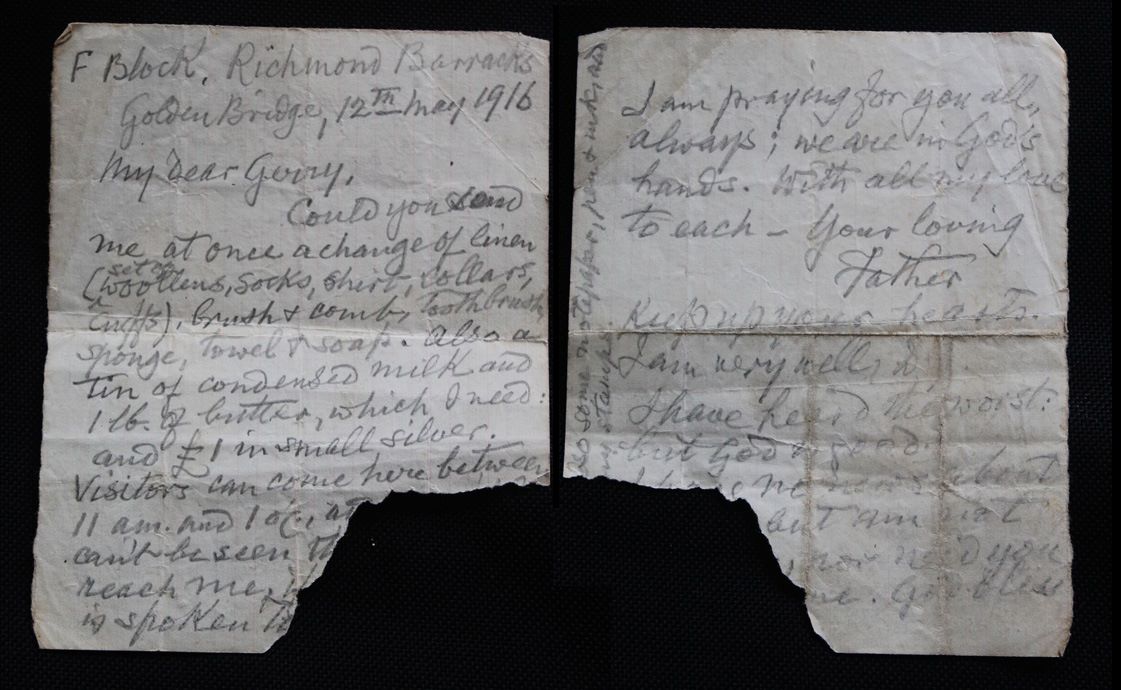 F Block, Richmond Barracks
Golden Bridge, 12th May 1916
My dear Gerry,
Could you send
me at once a change of linen
(set of
woollens, socks, shirt, collars,
& cuffs), brush & comb, toothbrush,
sponge, towel & soap. Also a
tin of condensed milk and
1 lb. of butter, which I need:
and £1 in small silver.
Visitors can come here between
11 am. and 1 oc., at
can't be seen th
reach me.
is spoken
also some notepaper, pen & ink, and
stamps
I am praying for you all,
always; we are in God's
hands. With all my love
to each – Your loving
Father
Keep up your hearts.
I am very well, &
I have heard the worst:
but God is good.
I have no news about
but am not
nor need you
me. God bless